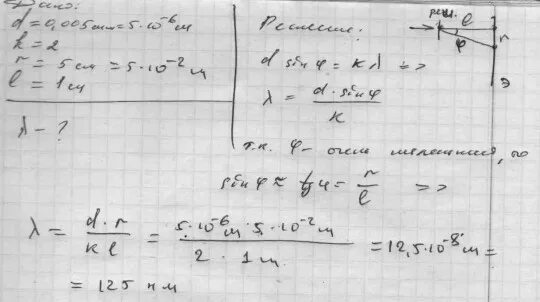 Дано:
d = 0,005 мм = 5·10⁻⁶ м
k = 2
r = 5 см = 5·10⁻² м
l = 1 м
λ - ?
Решение:
d sin φ = kλ =>
λ = d·sin φ / k
т.к. φ - очень маленький, то
sin φ ≈ tg φ = r / l =>
λ = d·r / k l = 5·10⁻⁶ м · 5·10⁻² м / 2 · 1 м = 12,5·10⁻⁸ м =
= 125 нм
реш.
l
φ
r
Э